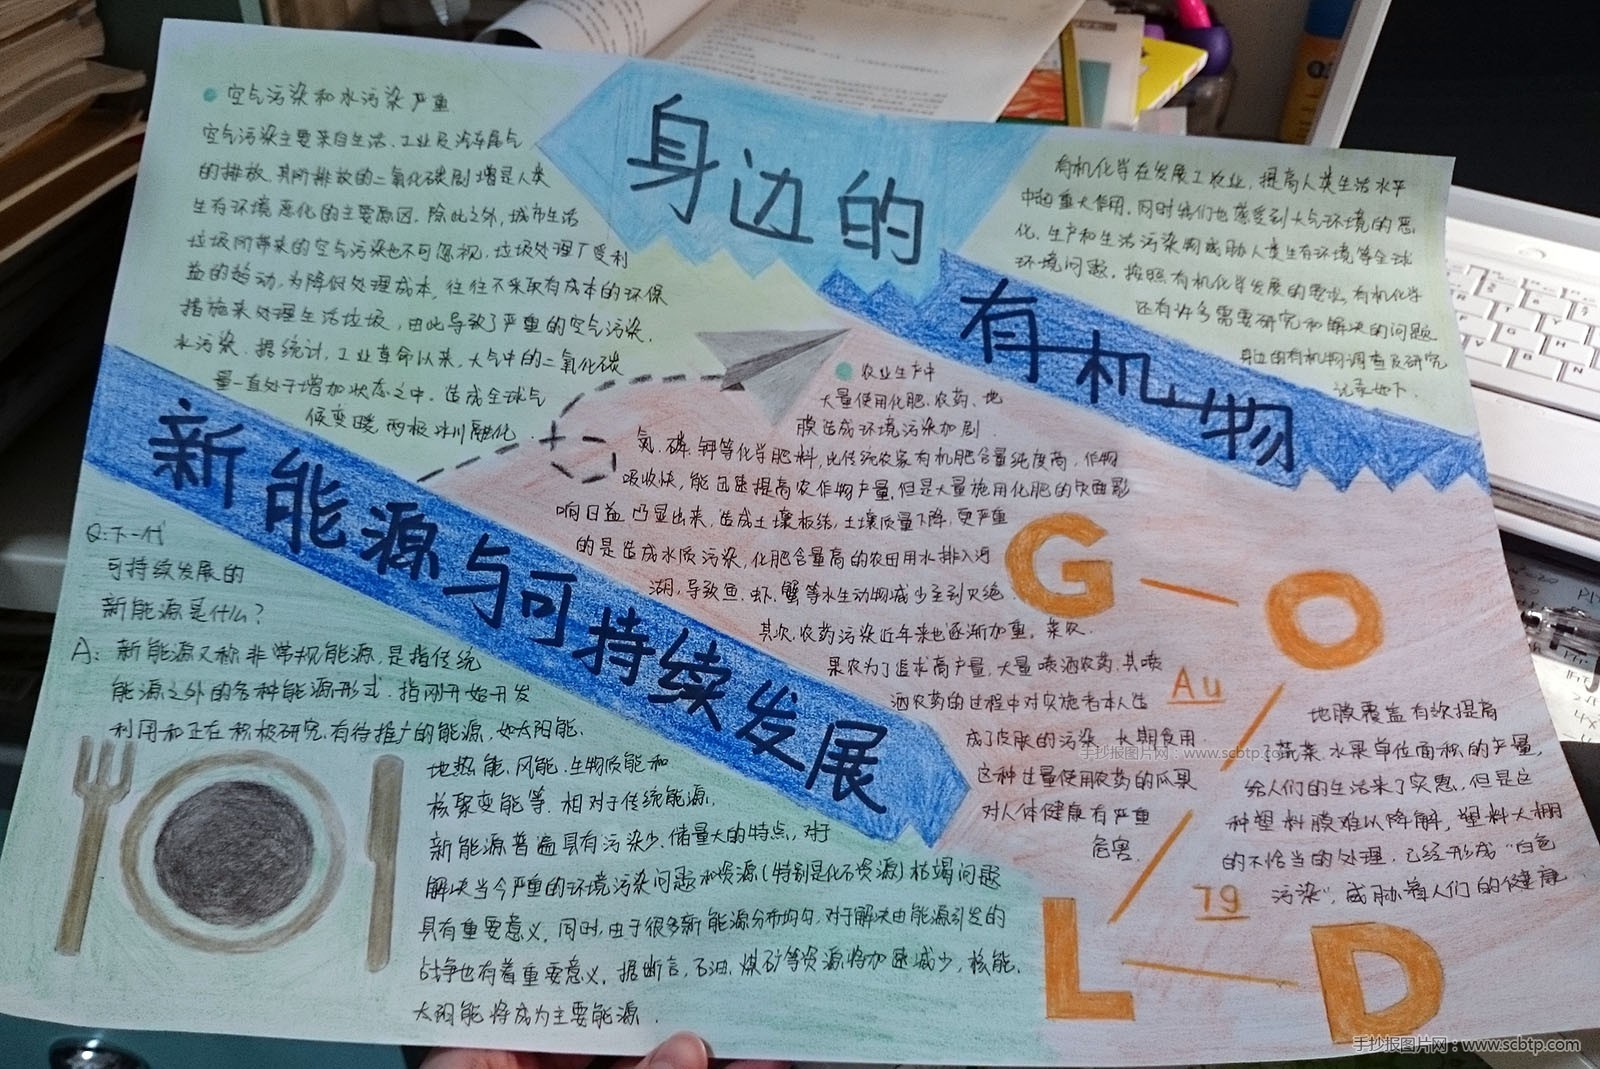 身边的
有机物
新能源与可持续发展
空气污染和水污染严重
空气污染主要来自生活、工业及汽车尾气
的排放,其所排放的二氧化碳剧增是人类
生存环境恶化的主要原因,除此之外,城市生活
垃圾所带来的空气污染也不可忽视,垃圾处理厂受利
益的趋动,为降低处理成本,往往不采取有成本的环保
措施来处理生活垃圾,由此导致了严重的空气污染、
水污染.据统计,工业革命以来,大气中的二氧化碳
量一直处于增加状态之中.造成全球气
候变暖,两极冰川融化.
有机化学在发展工农业,提高人类生活水平
中起重大作用,同时我们也感受到大气环境的恶
化、生产和生活污染物威胁人类生存环境等全球
环境问题,按照有机化学发展的要求,有机化学
还有许多需要研究和解决的问题
身边的有机物调查及研究
记录如下.
农业生产中
大量使用化肥、农药、地
膜造成环境污染加剧.
氮、磷、钾等化学肥料,比传统农家有机肥含量纯度高,作物
吸收快,能迅速提高农作物产量,但是大量施用化肥的负面影
响日益凸显出来,造成土壤板结,土壤质量下降,更严重
的是造成水质污染,化肥含量高的农田用水排入河
湖,导致鱼、虾、蟹等水生动物减少至到灭绝.
其次,农药污染近年来也逐渐加重,菜农、
果农为了追求高产量,大量喷洒农药,其喷
洒农药的过程中对实施者本人造
成了皮肤的污染,长期食用
这种过量使用农药的瓜果
对人体健康有严重
危害.
地膜覆盖有效提高
蔬菜、水果单位面积的产量,
给人们的生活来了实惠,但是这
种塑料膜难以降解,塑料大棚
的不恰当的处理,已经形成“白色
污染”,威胁着人们的健康.
G—O
Au
79
L—D
Q:下一代
可持续发展的
新能源是什么?
A:新能源又称非常规能源,是指传统
能源之外的各种能源形式.指刚开始开发
利用和正在积极研究,有待推广的能源,如太阳能、
地热能、风能、生物质能和
核聚变能等.相对于传统能源,
新能源普遍具有污染少、储量大的特点,对于
解决当今严重的环境污染问题和资源(特别是化石资源)枯竭问题
具有重要意义,同时,由于很多新能源分布均匀,对于解决由能源引发的
战争也有着重要意义.据断言,石油、煤矿等资源将加速减少,核能、
太阳能将成为主要能源.
手抄报图片网:www.scbtp.com
手抄报图片网:www.scbtp.com